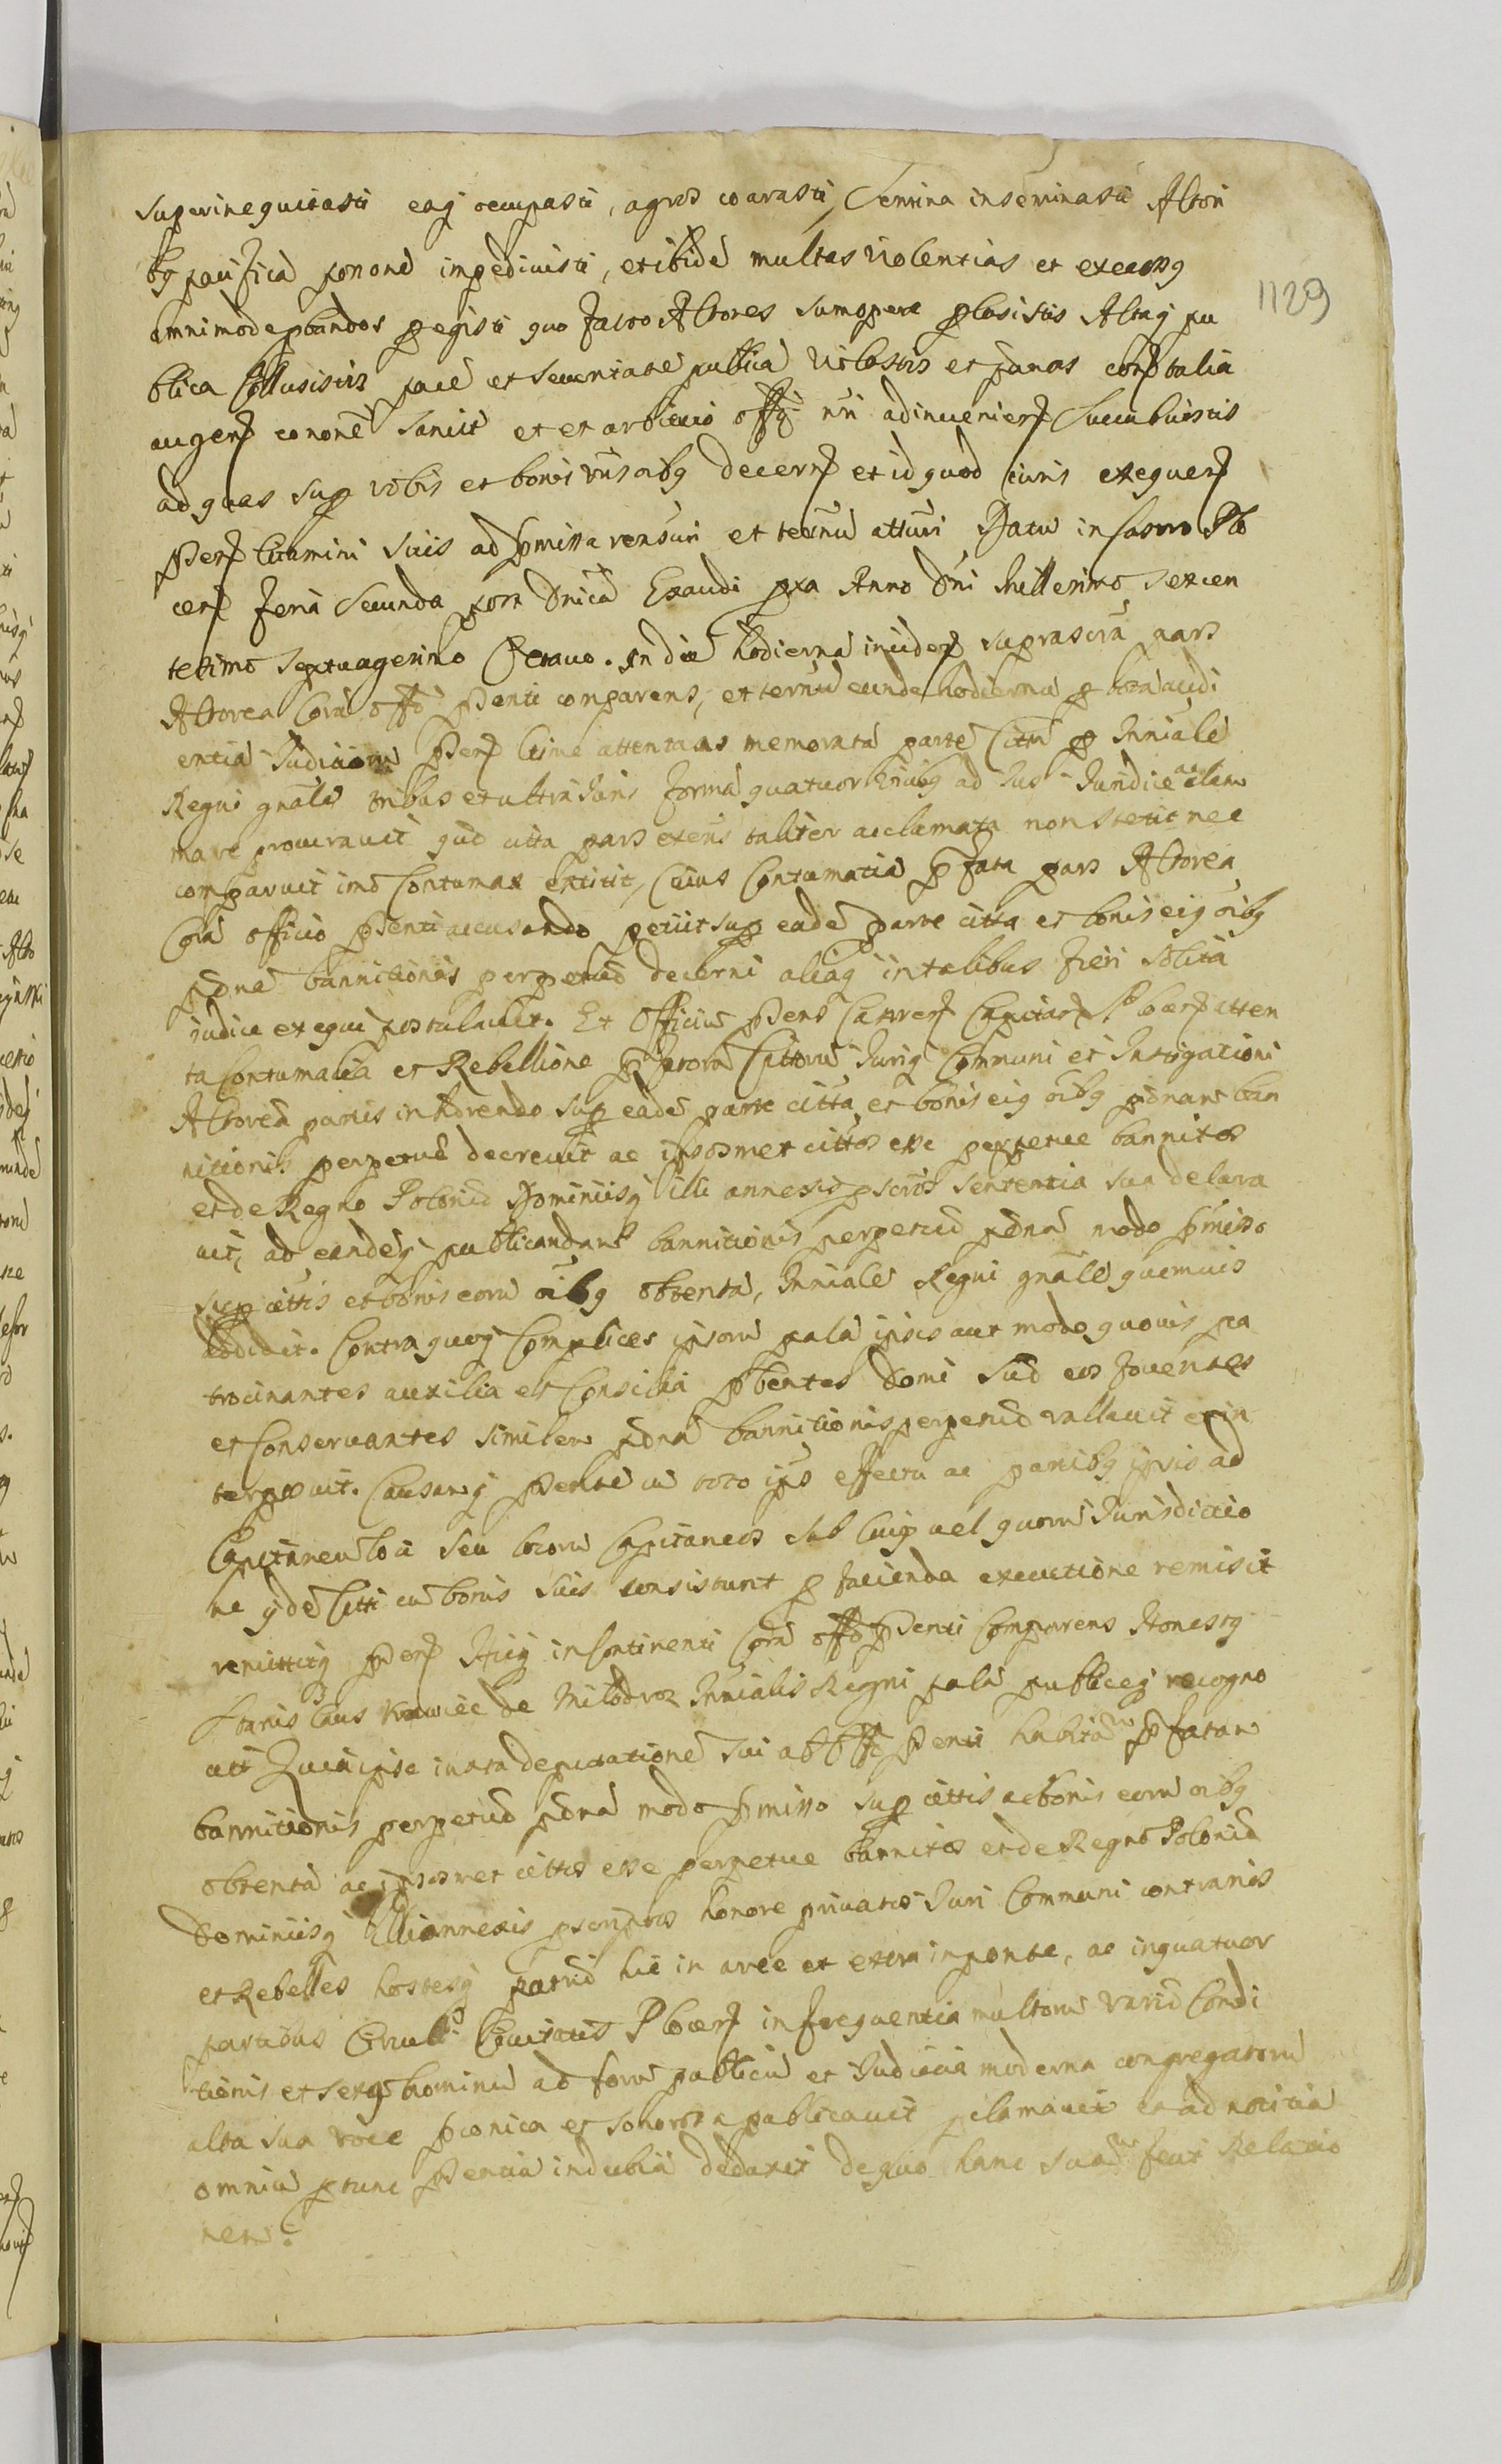 superinequitastis easq occupastis, agros coarastis, Semina inseminastis Actori
bq pacifica possone impedivistis, et ibide multas violentias et excessq
omnimode pbandos pegistis quo facto Actores sumopere plusistis Aliaq pu
blica Collusistis pace et securitate publica violastis et panas cont talia
augen cononé sancit et ex arbitrio offy nri adinvenien Succubuistis
ad quas sup vobis et bonis vris oibq decern et id quod iuris exequen
pnen Citamini Sitis ad pmissa rensuri et ternu atturi Datu in Castro Plo
cen feria Secunda post Dnica Exaudi pxa Anno Dni Millesimo Sexcen
tesimo Septuagesimo Octavo. In die hodierna inciden suprascra pars
Actorea Cora offo pnenti comparens, et ternu eunde hodiernu p hora audi
entia Judiciorum pnen Cisme attentans memorata parte Citta p Mniale
Regni gnale tribus et ultra Juris forma quatuor vicibq ad Jus Juridice acclam
mare procuravit qud citta pars exens taliter acclamata non stetit nec
comparuit imo Contumax extitit, Cuius Contumatia pfata pars Actorea
Cora officio pnenti accusando petiit sup eade parte citta et bonis eiq oibq
pdna bannitionis perpetuæ decerni aliaq in talibus fieri solita
iudice exequi postulavit. Et Officiu pnens Castren Capitan Plocen atten
ta Contumatia et Rebellione pfatoru Cittoru Juriq Communi et Instigationi
Actoreæ partis inhærendo sup eade parte citta et bonis eiq oibq pdnam ban
nitionis perpetuæ decrevit ac ipsosmet cittos esse perpetue bannitos
et de Regno Poloniæ Dominiisq illi annexis pscros sententia sua delara
vit, ad eandeq publicandam bannitionis perpetuæ pdna modo pmisso
sup cittis et bonis eoru oibq obtenta, Mniale Regni gnale quemvis
addidit. Contra quosq Complices ipsoru pala ipsis aut modo quovis pa
trocinantes auxilia et Consilia pbentes domi suæ eos foventes
et Conservantes similem pdna bannitionis perpetuæ vallavit et in
terposuit. Causamq pnente cu toto ips effectu ac partibq ipsis ad
Capitaneu loci seu locoru Capitaneos sub Cuiq vel quoru Jurisdictio
ne yde Citti cu bonis suis consistunt p facienda executione remisit
remittitq pnen Huiq in Continenti Cora offo pnenti Comparens Honestq
Stanislaus Krawiec de Milodroz Mnialis Regni pala publiceq recogno
vit Quia ipse iuxta deputatione sui ab offo pnenti habita pfatam
bannitionis perpetuæ pdna modo pmisso sup cittis ac bonis eoru oibq
obtenta ac ipsosmet cittos esse perpetue bannitos et de Regno Poloniæ
Dominiisq Illi annexis pscriptos honore privatos Juri Communi contrarios
et Rebelles hostesq patriæ hic in arce et extra in ponte, ac in quatuor
partibus Circuli Civitatis Plocen in frequentia multoru variæ Condi
tionis et sexq hominu ad foru publicu et Judicia moderna congregatoru
alta sua voce pconica et sonorosa publicavit pclamavit ea ad notitia
omniu ptunc pnentiu indubiâ deduxit de quo hanc suam fecit Relatio
nem.
1129